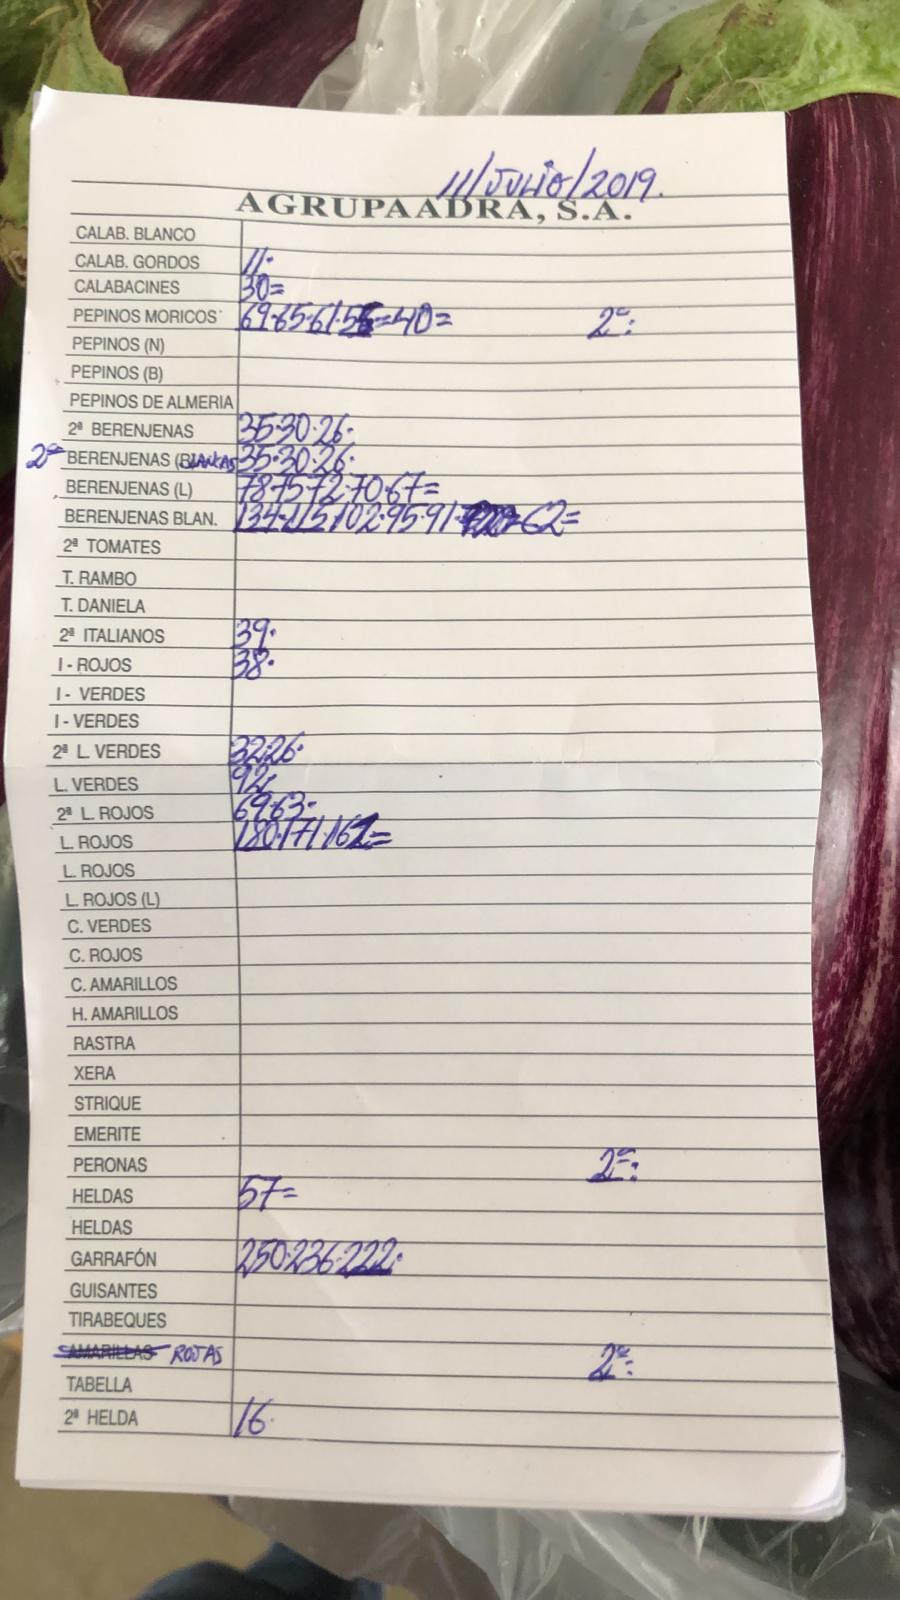 11/JULIO/2019.
AGRUPAADRA, S.A.
CALAB. BLANCO
CALAB. GORDOS 11.
CALABACINES 30=
PEPINOS MORICOS 69.65.61.55=40= 2ª:
PEPINOS (N)
PEPINOS (B)
PEPINOS DE ALMERIA
2ª BERENJENAS 35.30.26.
2ª BERENJENAS (BLANCAS 35.30.26.
BERENJENAS (L) 78.75.72.70.67=
BERENJENAS BLAN. 134.115.102.95.91. 62=
2ª TOMATES
T. RAMBO
T. DANIELA
2ª ITALIANOS 39.
I - ROJOS 38.
I - VERDES
I - VERDES
2ª L. VERDES 32.26.
L. VERDES 92.
2ª L. ROJOS 69.63.
L. ROJOS 180.171.162=
L. ROJOS
L. ROJOS (L)
C. VERDES
C. ROJOS
C. AMARILLOS
H. AMARILLOS
RASTRA
XERA
STRIQUE
EMERITE
PERONAS 2ª:
HELDAS 57=
HELDAS
GARRAFÓN 250.236.222.
GUISANTES
TIRABEQUES
AMARILLAS ROJAS 2ª:
TABELLA
2ª HELDA 16.